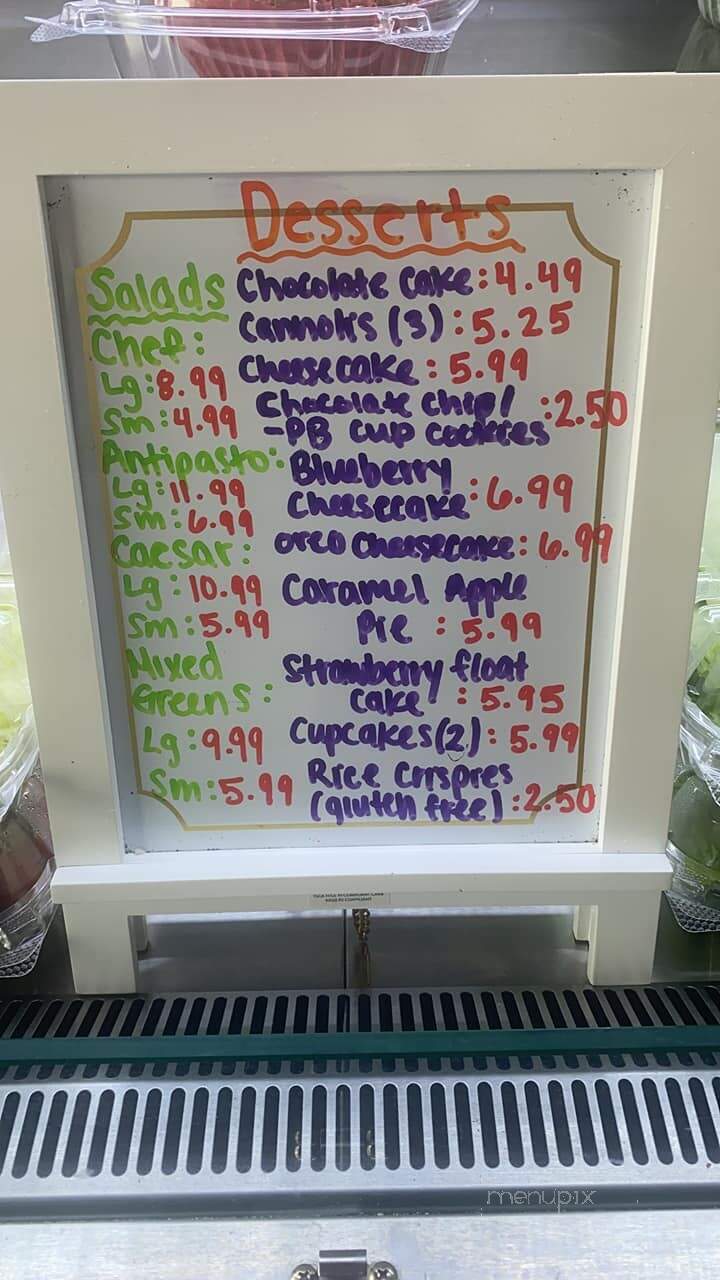 Desserts
Salads
Chef:
Lg: 8.99
Sm: 4.99
Antipasto:
Lg: 11.99
Sm: 6.99
Caesar:
Lg: 10.99
Sm: 5.99
Mixed
Greens:
Lg: 9.99
Sm: 5.99
Chocolate Cake: 4.49
Cannolis (3): 5.25
Cheesecake: 5.99
Chocolate chip/
-PB cup cookies :2.50
Blueberry
Cheesecake : 6.99
Oreo Cheesecake: 6.99
Caramel Apple
Pie : 5.99
Strawberry float
Cake : 5.95
Cupcakes (2): 5.99
Rice Crispies
(gluten free) :2.50
menupix